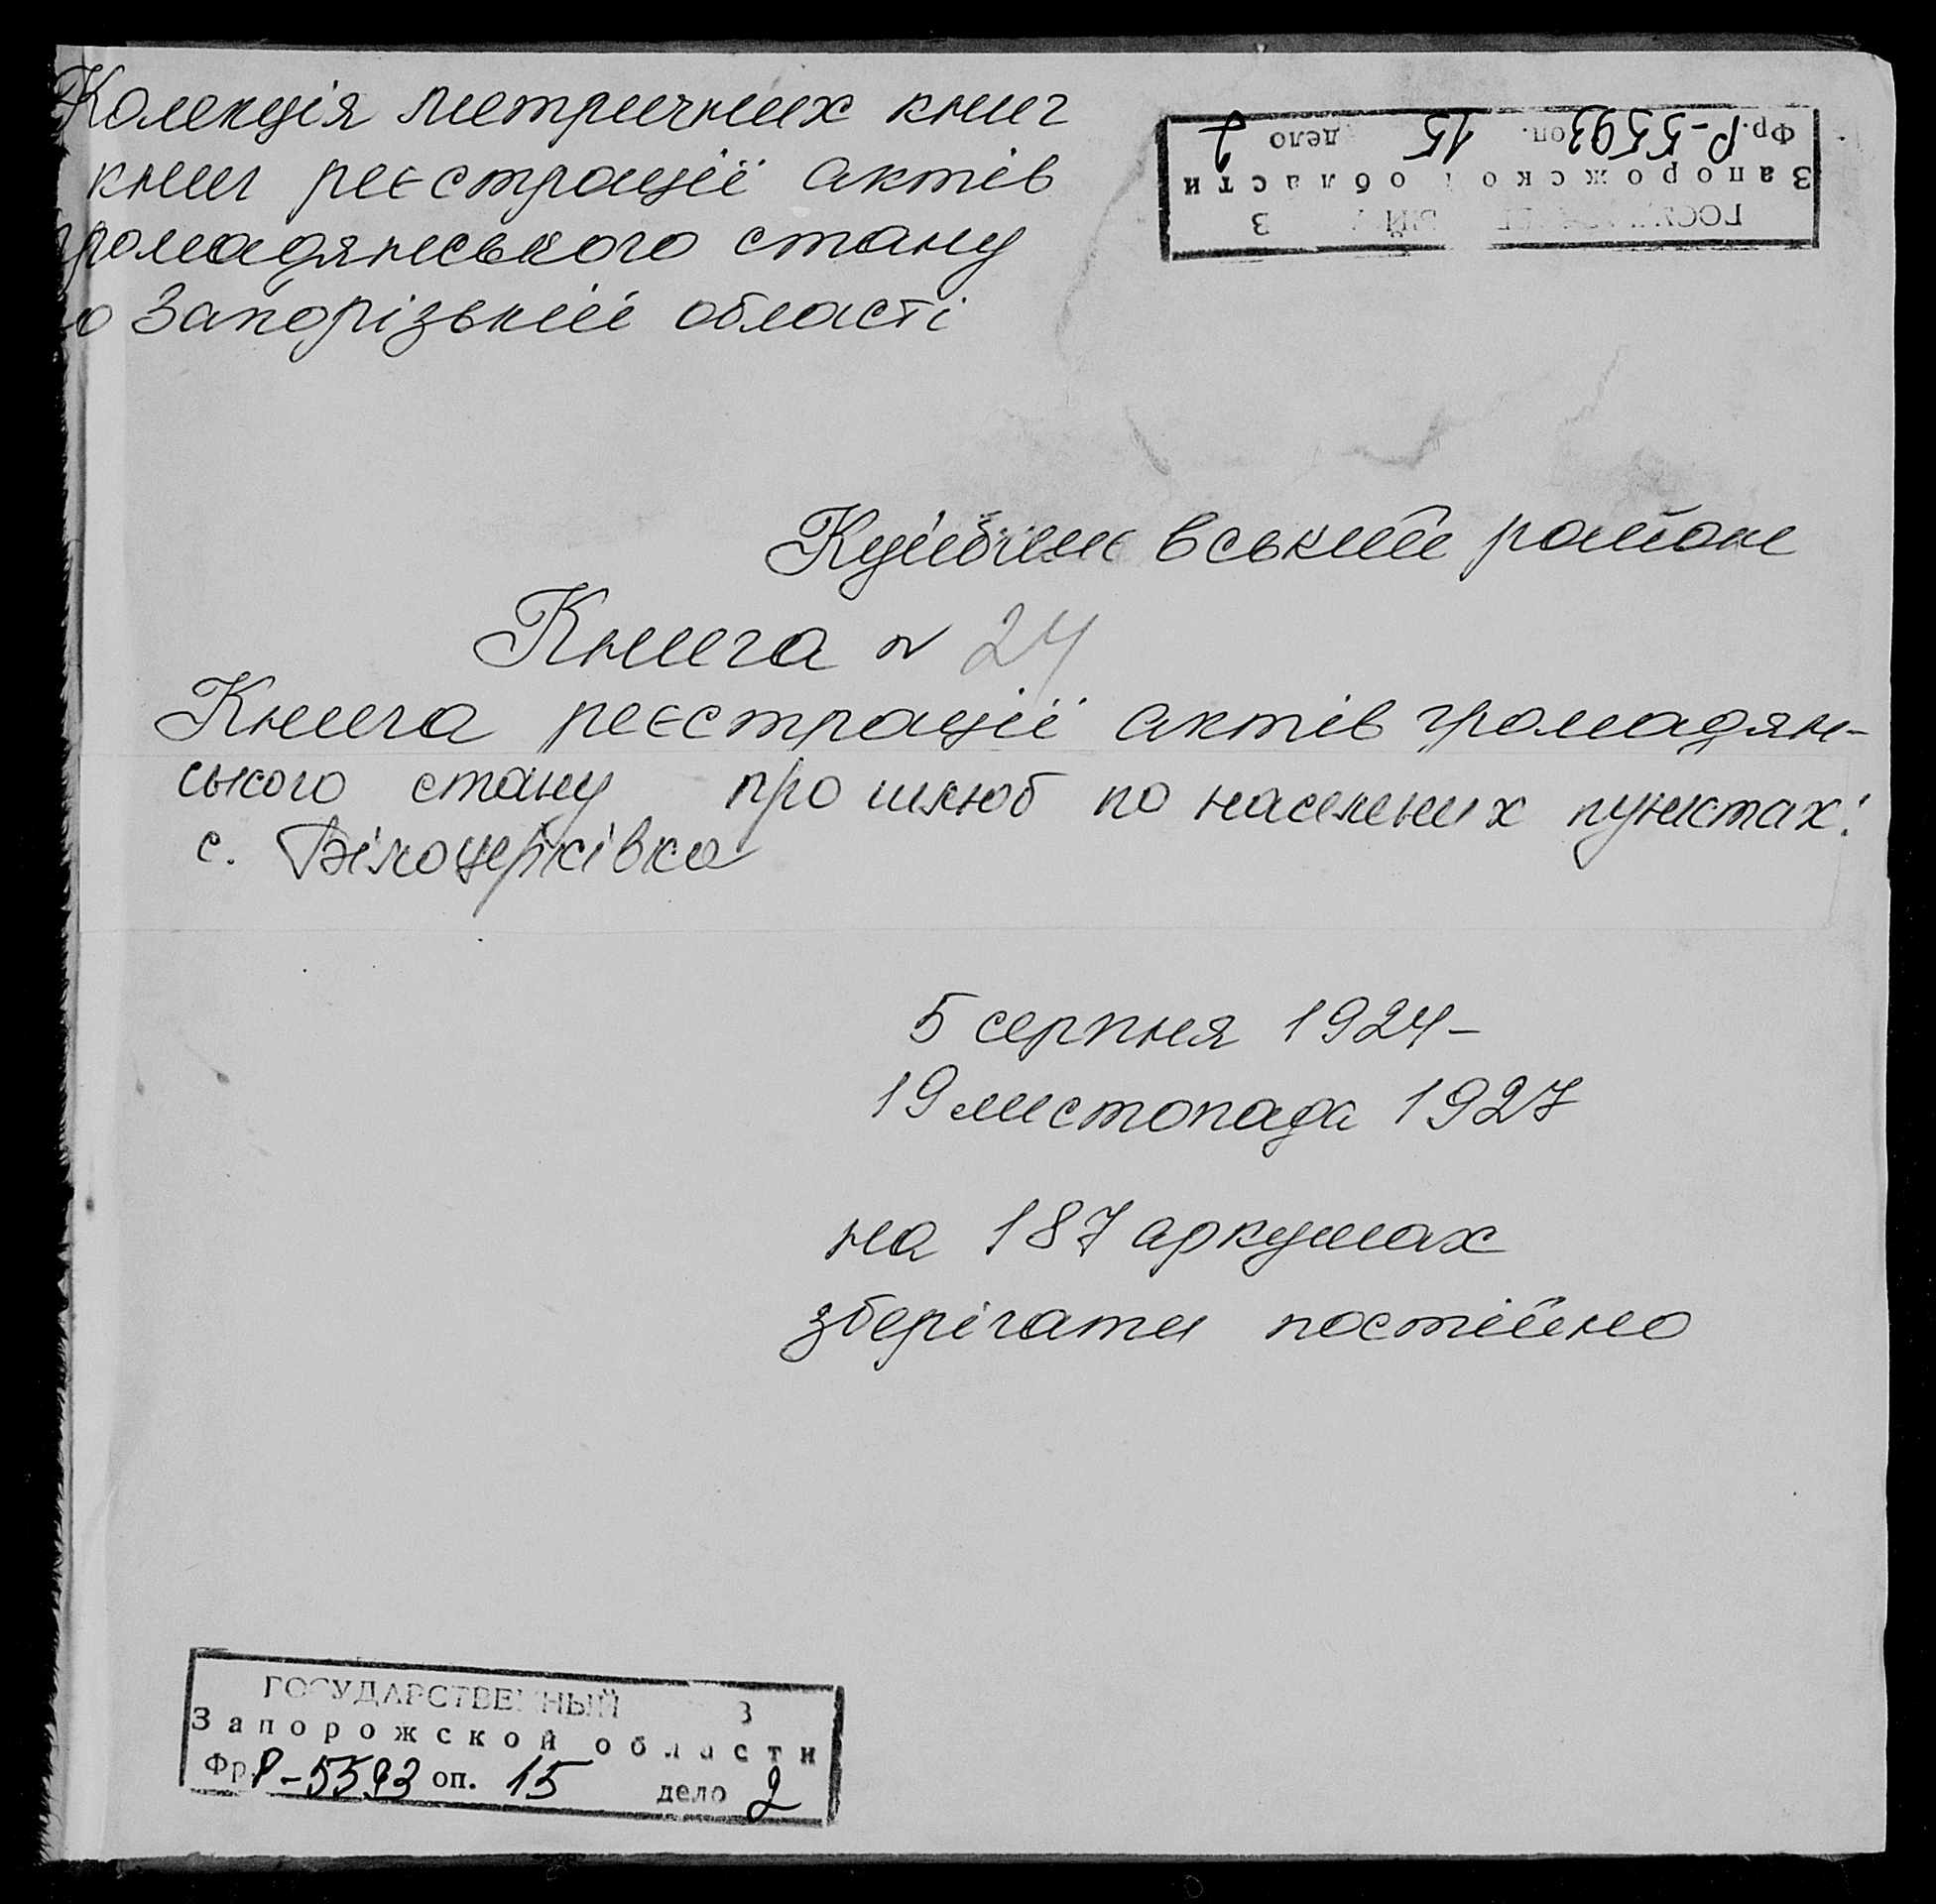 Колекція метричних книг
книг реєстрації актів
громадянського стану
по Запорізькій області
Фр. Р-5593 оп. 15 дело 2
Запорожской области
Куйбишевський район
Книга № 24
Книга реєстрації актів громадян-
ського стану про шлюб по населених пунктах:
с. Білоцерківка
5 серпня 1924-
19 листопада 1927
на 187 аркушах
зберігати постійно
ГОСУДАРСТВЕННЫЙ
Запорожской области
Фр. Р-5593 оп. 15 дело 2